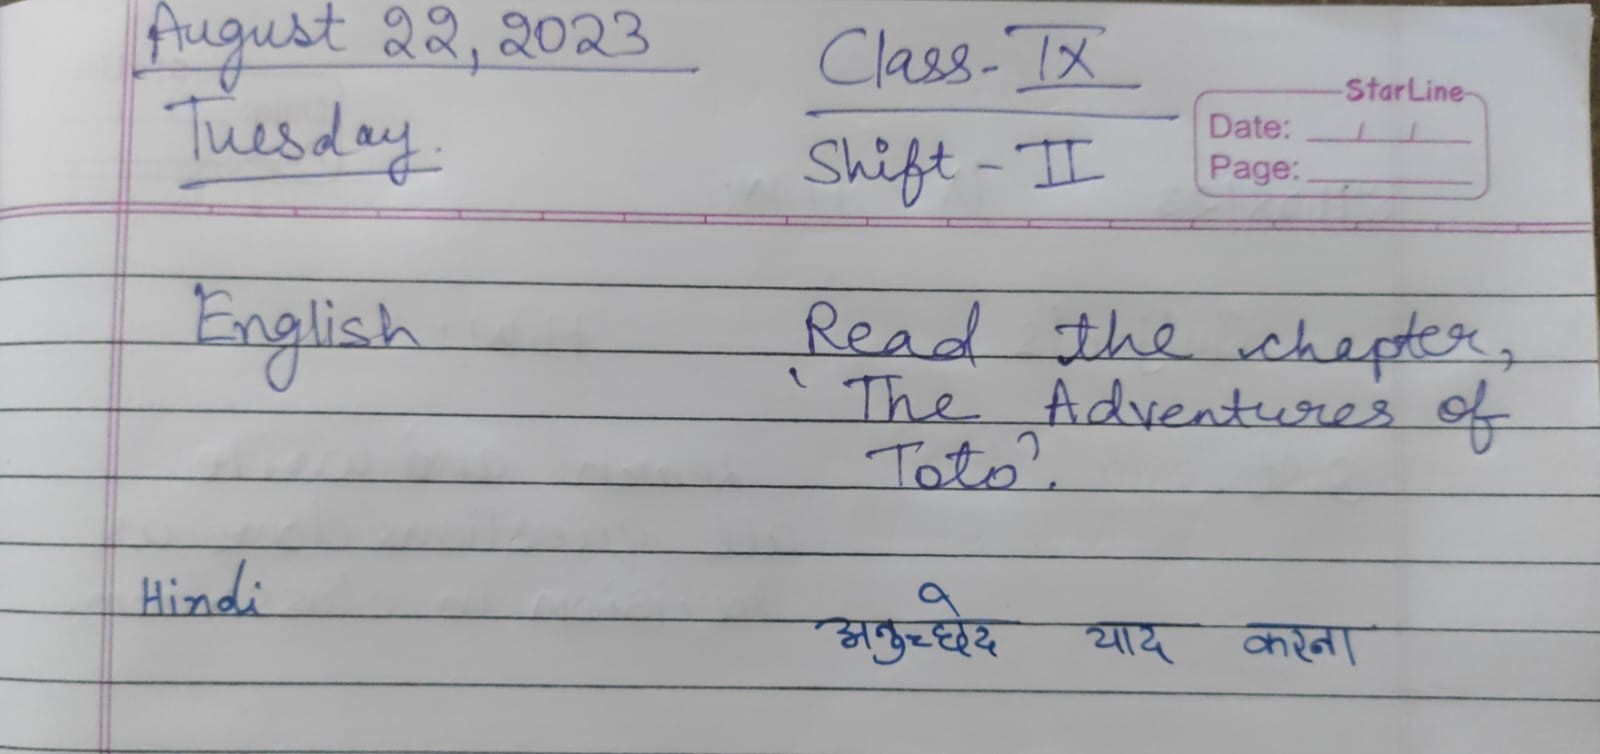 August 22, 2023
Tuesday.
Class-IX
Shift-II
StarLine
Date: / /
Page:
English
Read the chapter,
'The Adventures of
Toto'.
Hindi
अनुच्छेद याद करना